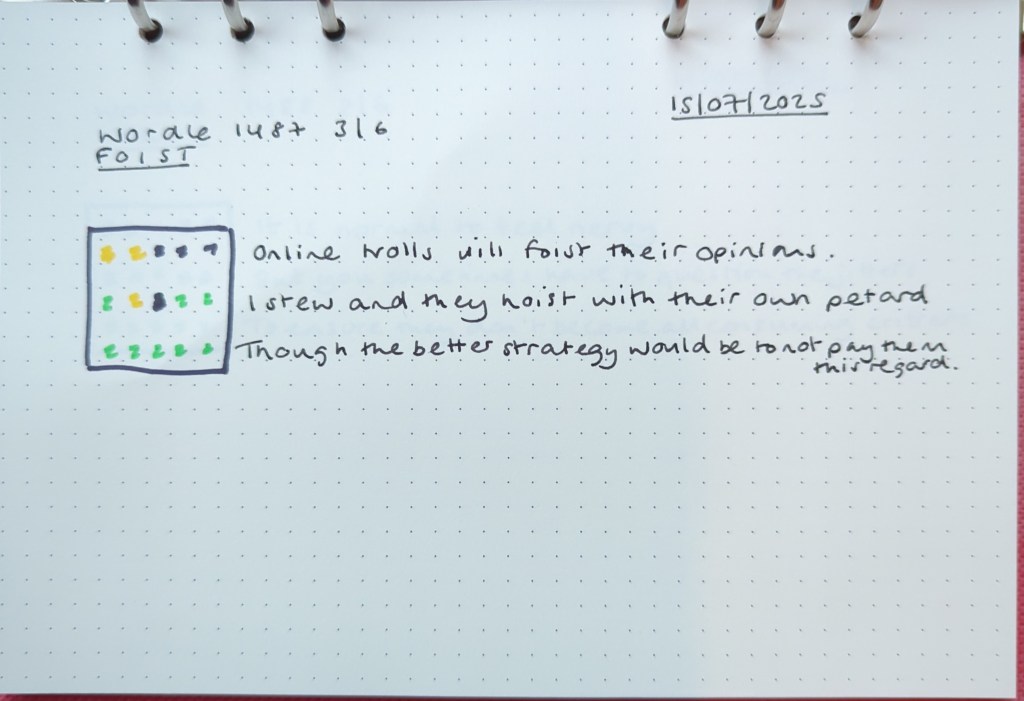 15/07/2025
Wordle 1487 3/6
FOIST
Online trolls will foist their opinions.
I stew and they hoist with their own petard
Though the better strategy would be to not pay them
this regard.